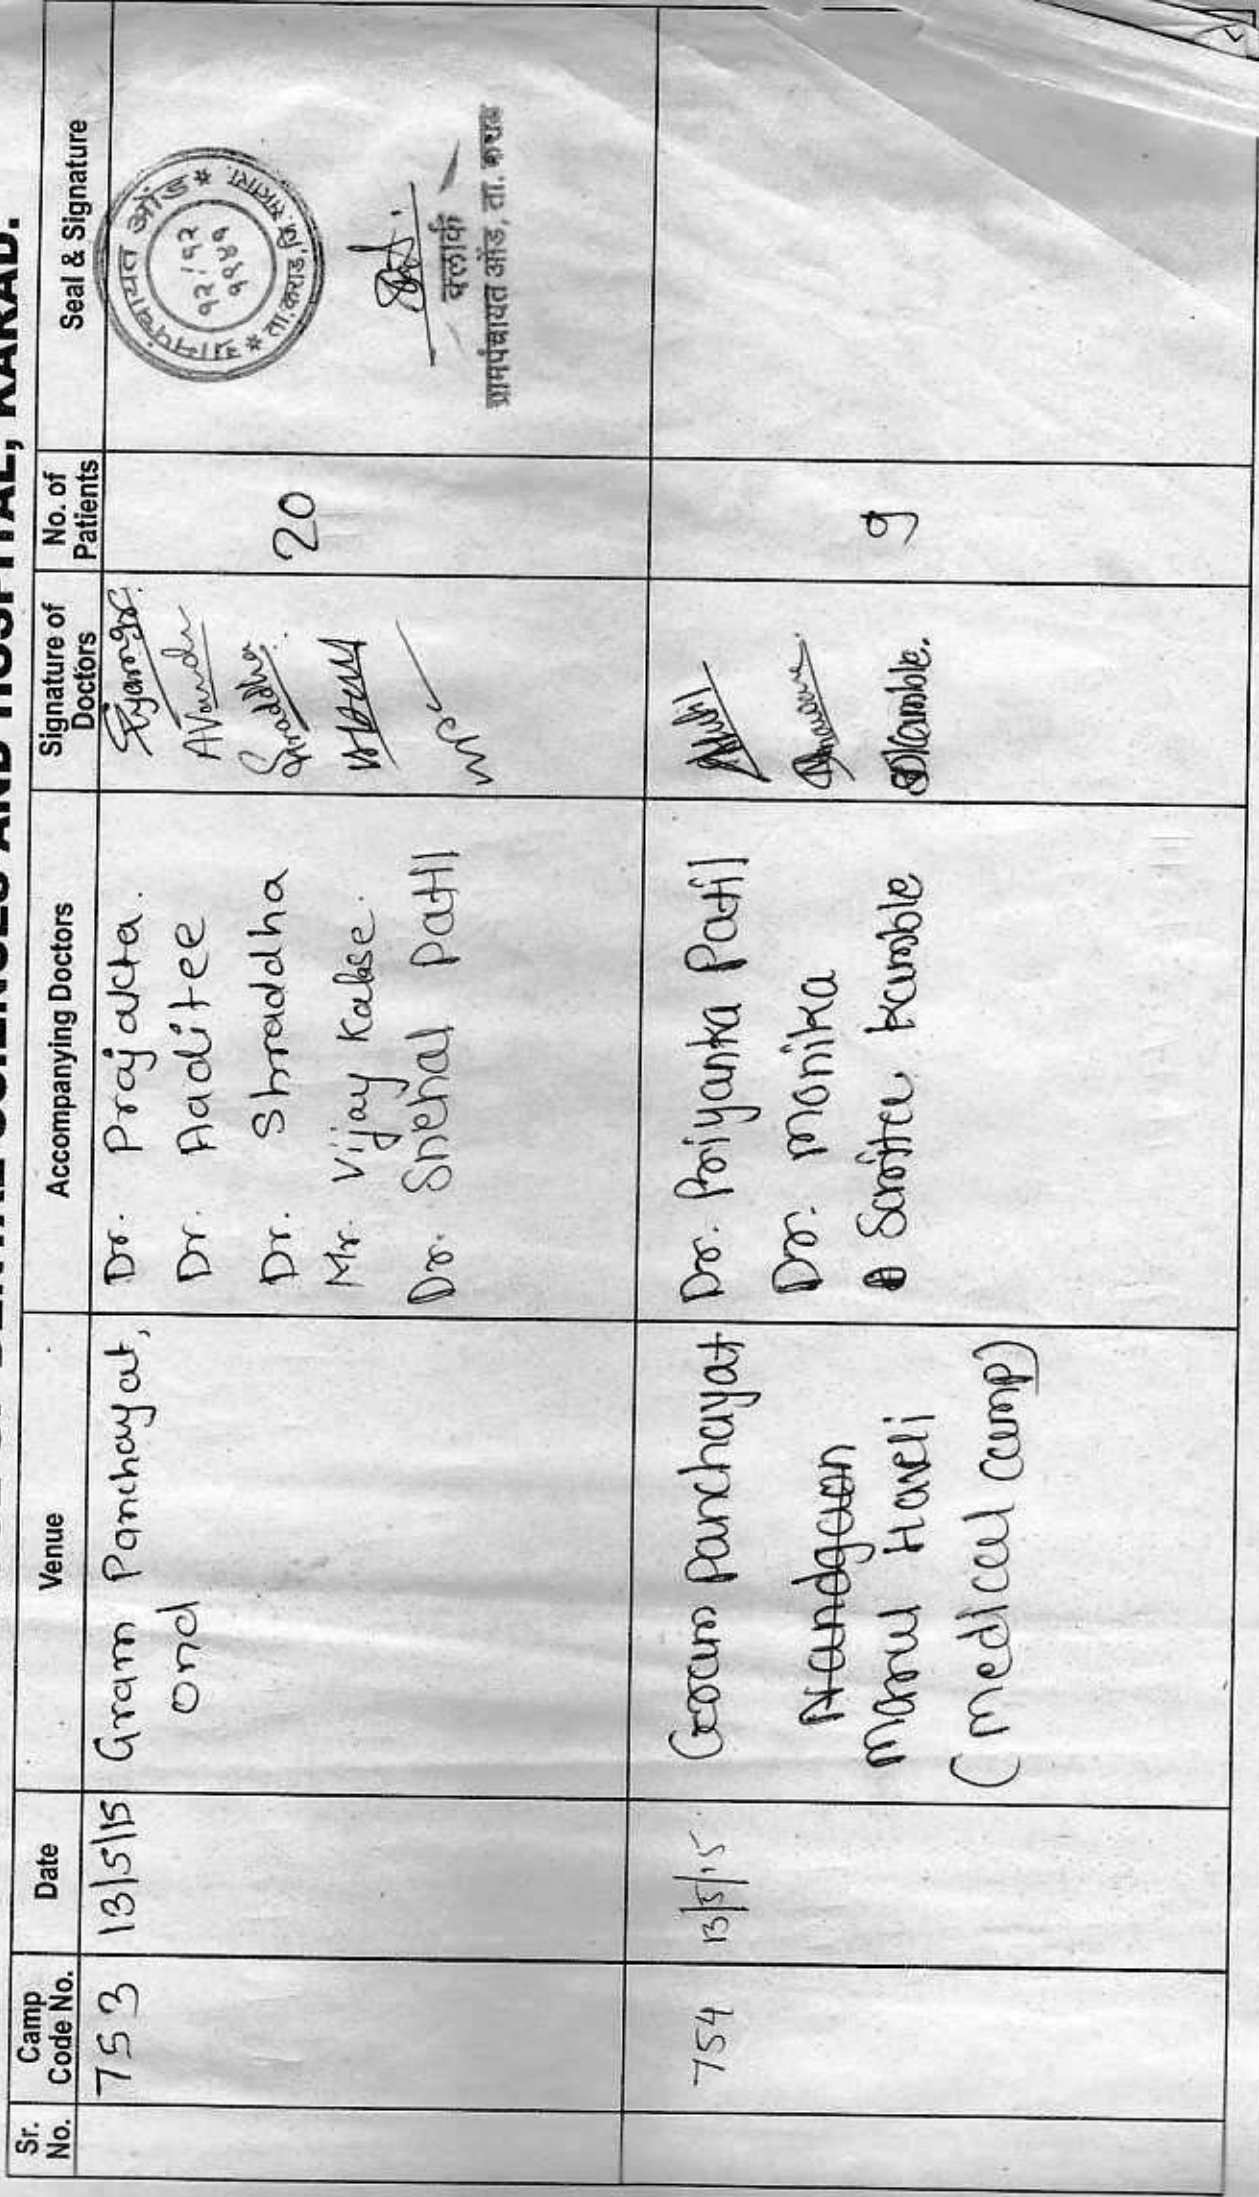 DENTAL SCIENCES AND HOSPITAL, KARAD.
Sr. No.
Camp Code No.
Date
Venue
Accompanying Doctors
Signature of Doctors
No. of Patients
Seal & Signature
753
13/5/15
Gram Panchayat,
ond
Dr. Prajakta.
Dr. Aaditee
Dr. Shraddha
Mr. Vijay Kabse.
Dr. Snehal Patil
Shraddha
20
ग्रामपंचायत ओंड
ता.कराड, जि.सातारा.
१२/१२
१९४१
क्लार्क
ग्रामपंचायत ओंड, ता. कराड
754
13/5/15
Gram Panchayat
Nandgaon
Marul Haveli
(Medical camp)
Dr. Priyanka Patil
Dr. Monika
Sarita Kamble
Kamble.
9